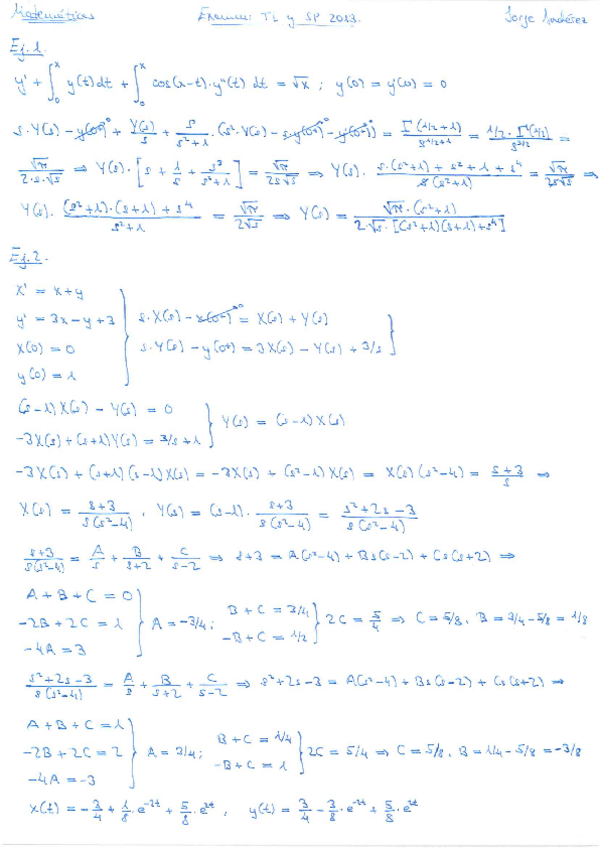 Matemáticas Examen TL y SP 2013. Jorge
Ej. 1.
y' + ∫₀ˣ y(t) dt + ∫₀ˣ cos(x-t)·y''(t) dt = √x ; y(0) = y'(0) = 0
s·Y(s) - y(0⁺)⁰ + Y(s)/s + s/(s²+1) · (s²·Y(s) - s·y(0⁺)⁰ - y'(0⁺)⁰) = Γ(1/2+1)/s^(1/2+1) = 1/2·Γ(1/2)/s^(3/2) =
√π/(2·s·√s) ⇒ Y(s)·[s + 1/s + s³/(s²+1)] = √π/(2s√s) ⇒ Y(s)· (s·(s²+1) + s²+1+s⁴)/(s(s²+1)) = √π/(2s√s) ⇒
Y(s)· ((s²+1)·(s+1) + s⁴)/(s²+1) = √π/(2√s) ⇒ Y(s) = √π·(s²+1)/(2·√s·[(s²+1)(s+1)+s⁴])
Ej. 2.
x' = x+y
y' = 3x-y+3
x(0) = 0
y(0) = 1
s·X(s) - x(0⁺)⁰ = X(s) + Y(s)
s·Y(s) - y(0⁺) = 3X(s) - Y(s) + 3/s
(s-1)X(s) - Y(s) = 0
-3X(s) + (s+1)Y(s) = 3/s+1
Y(s) = (s-1)X(s)
-3X(s) + (s+1)(s-1)X(s) = -3X(s) + (s²-1)X(s) = X(s)(s²-4) = (s+3)/s ⇒
X(s) = (s+3)/(s(s²-4)) , Y(s) = (s-1)· (s+3)/(s(s²-4)) = (s²+2s-3)/(s(s²-4))
(s+3)/(s(s²-4)) = A/s + B/(s+2) + C/(s-2) ⇒ s+3 = A(s²-4) + Bs(s-2) + Cs(s+2) ⇒
A+B+C = 0
-2B+2C = 1
-4A = 3
A = -3/4 ;
B+C = 3/4
-B+C = 1/2
2C = 5/4 ⇒ C = 5/8 , B = 3/4 - 5/8 = 1/8
(s²+2s-3)/(s(s²-4)) = A/s + B/(s+2) + C/(s-2) ⇒ s²+2s-3 = A(s²-4) + Bs(s-2) + Cs(s+2) ⇒
A+B+C = 1
-2B+2C = 2
-4A = -3
A = 3/4 ;
B+C = 1/4
-B+C = 1
2C = 5/4 ⇒ C = 5/8 , B = 1/4 - 5/8 = -3/8
x(t) = -3/4 + 1/8·e^(-2t) + 5/8·e^(2t) , y(t) = 3/4 - 3/8·e^(-2t) + 5/8·e^(2t)